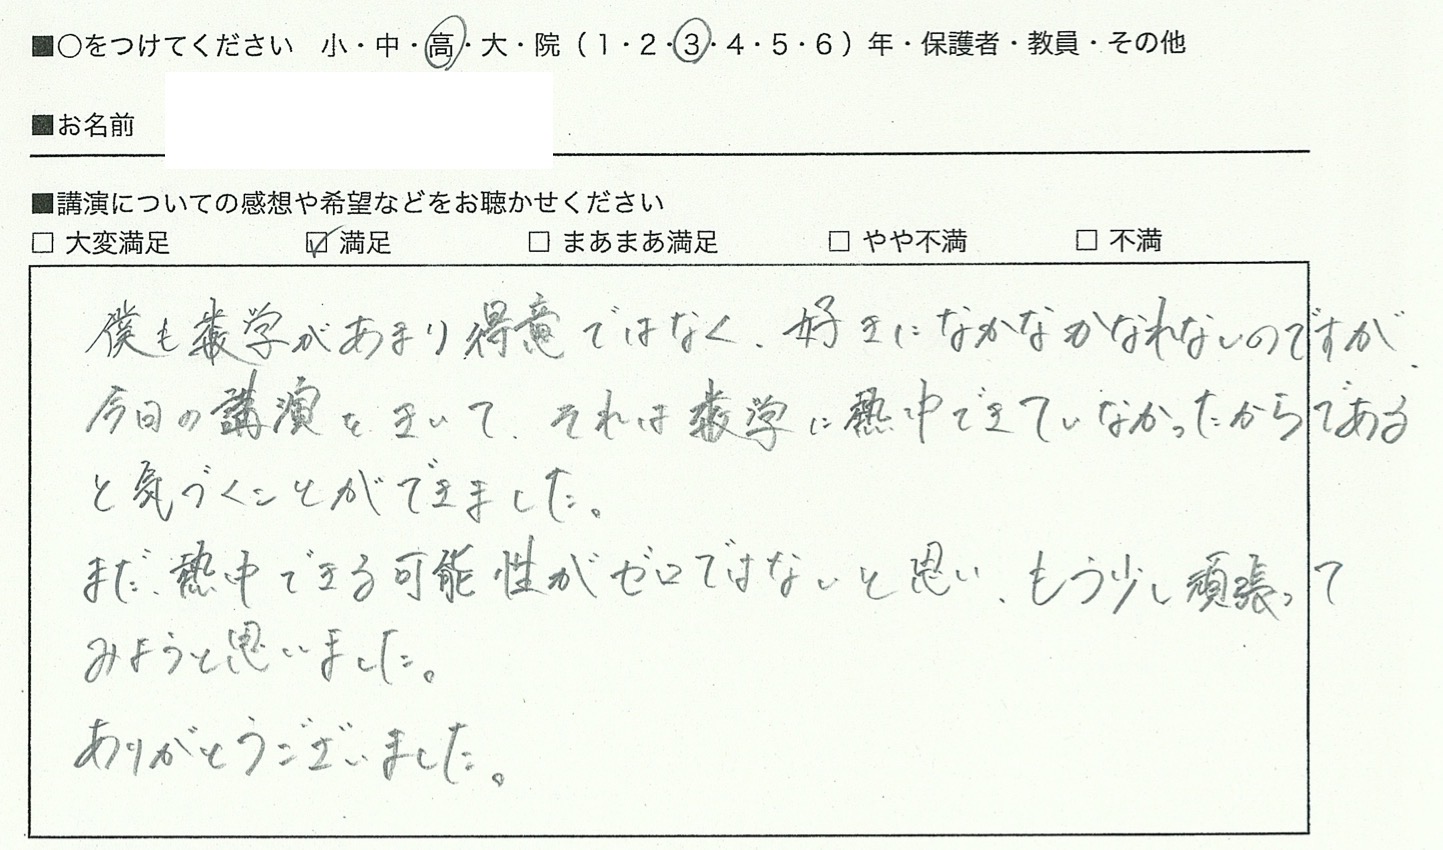 ■○をつけてください 小・中・高・大・院（1・2・3・4・5・6）年・保護者・教員・その他
■お名前
■講演についての感想や希望などをお聴かせください
□ 大変満足 ☑ 満足 □ まあまあ満足 □ やや不満 □ 不満
僕も数学があまり得意ではなく、好きになかなかなれないのですが、
今日の講演をきいて、それは数学に熱中できていなかったからである
と気づくことができました。
まだ、熱中できる可能性がゼロではないと思い、もう少し頑張って
みようと思いました。
ありがとうございました。